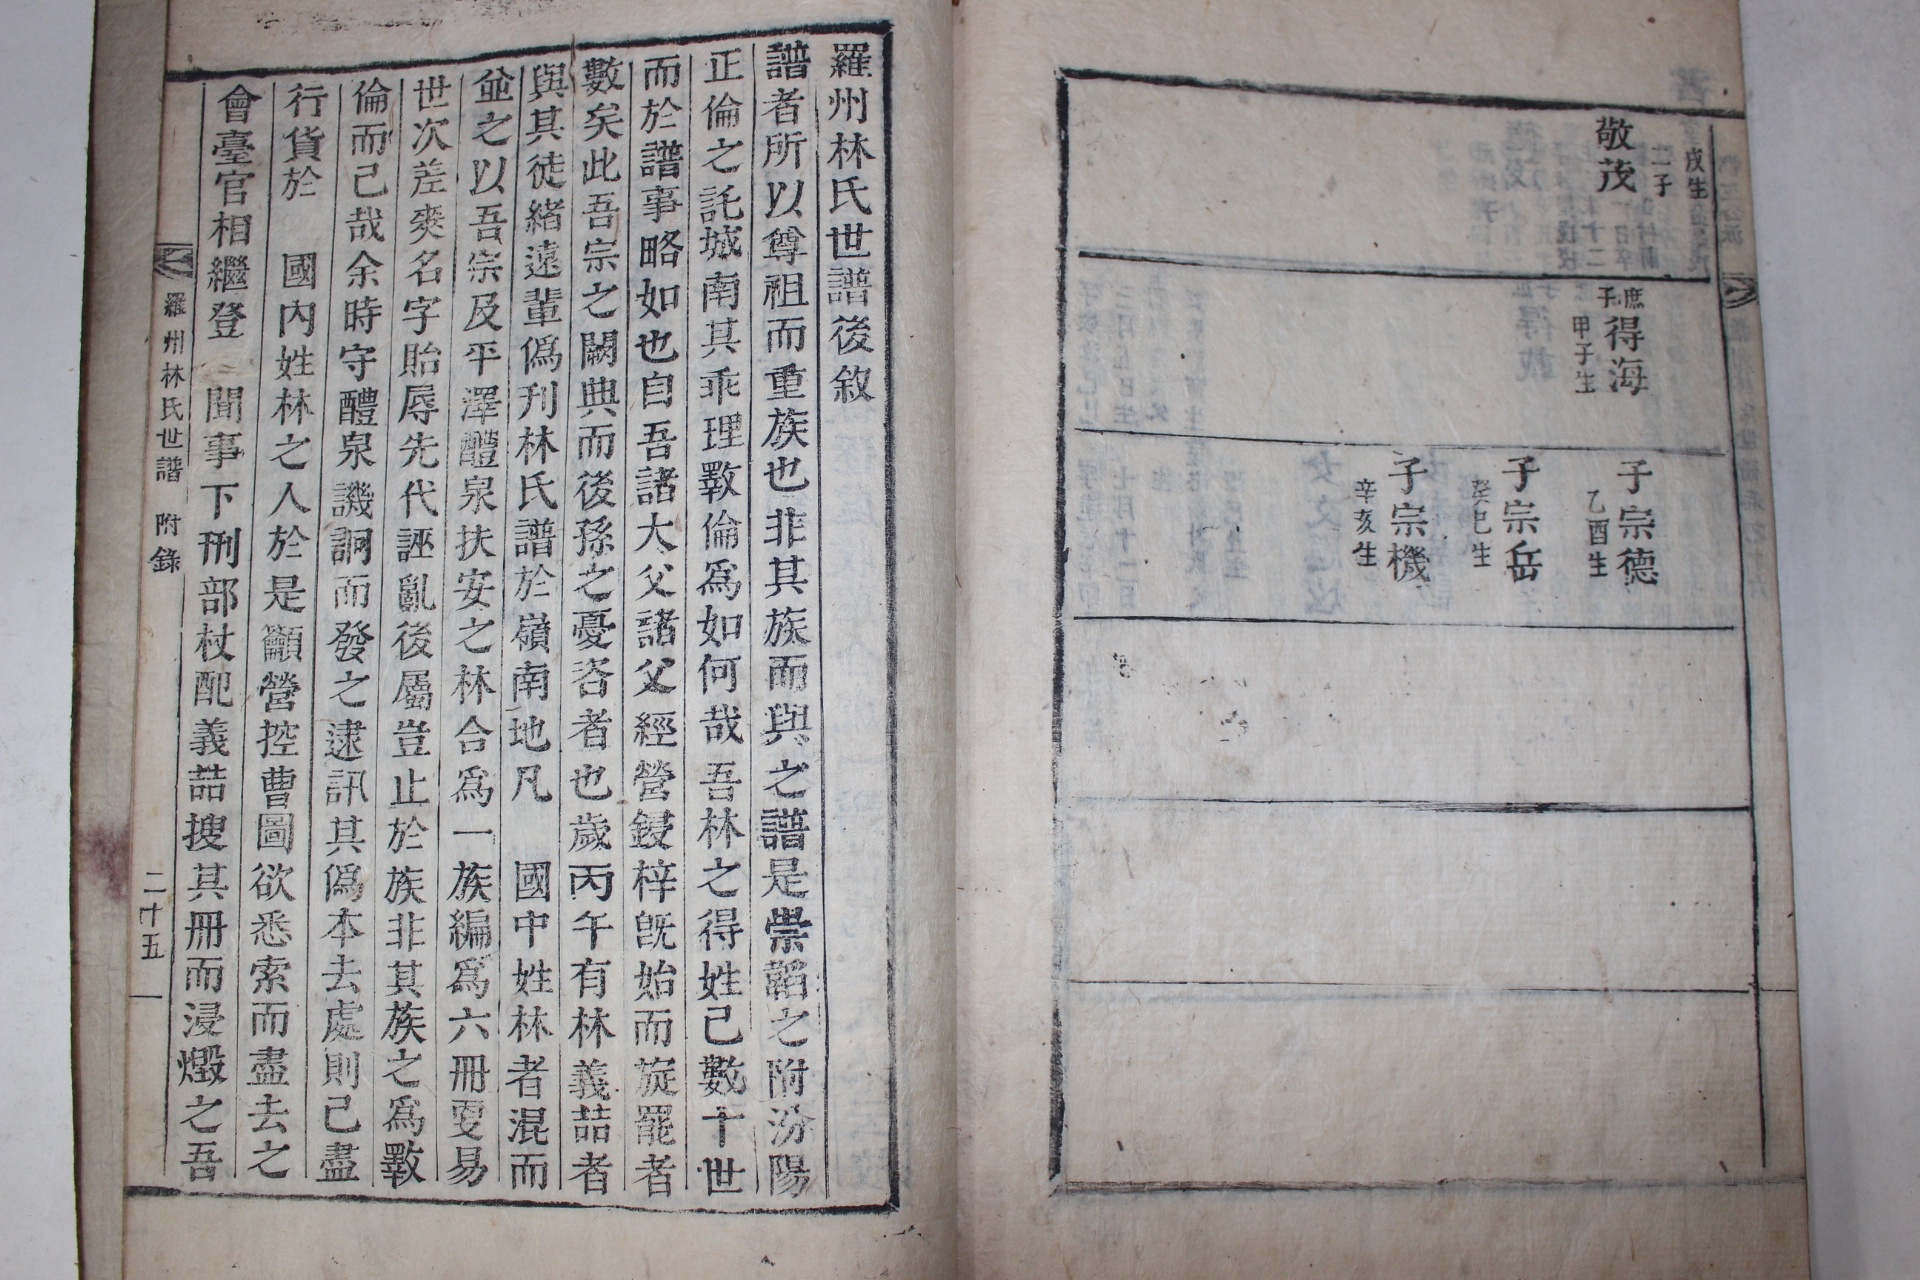 戌生
二子
敬茂
庶子
得海
甲子生
子宗德
乙酉生
子宗岳
癸巳生
子宗機
辛亥生
羅州林氏世譜後敘
譜者所以尊祖而重族也非其族而與之譜是崇韜之附汾陽
正倫之託城南其乖理斁倫爲如何哉吾林之得姓已數十世
而於譜事略如也自吾諸大父諸父經營鋟梓旣始而旋罷者
數矣此吾宗之闕典而後孫之憂咨者也歲丙午有林義喆者
與其徒緖遠輩僞刊林氏譜於嶺南地凡 國中姓林者混而
並之以吾宗及平澤醴泉扶安之林合爲一族編爲六冊變易
世次差爽名字貽辱先代誣亂後屬豈止於族非其族之爲斁
倫而已哉余時守醴泉譏詗而發之逮訊其僞本去處則已盡
行貨於 國內姓林之人於是籲營控曹圖欲悉索而盡去之
會臺官相繼登 聞事下刑部杖配義喆搜其冊而浸燬之吾
羅州林氏世譜 附錄 二十五